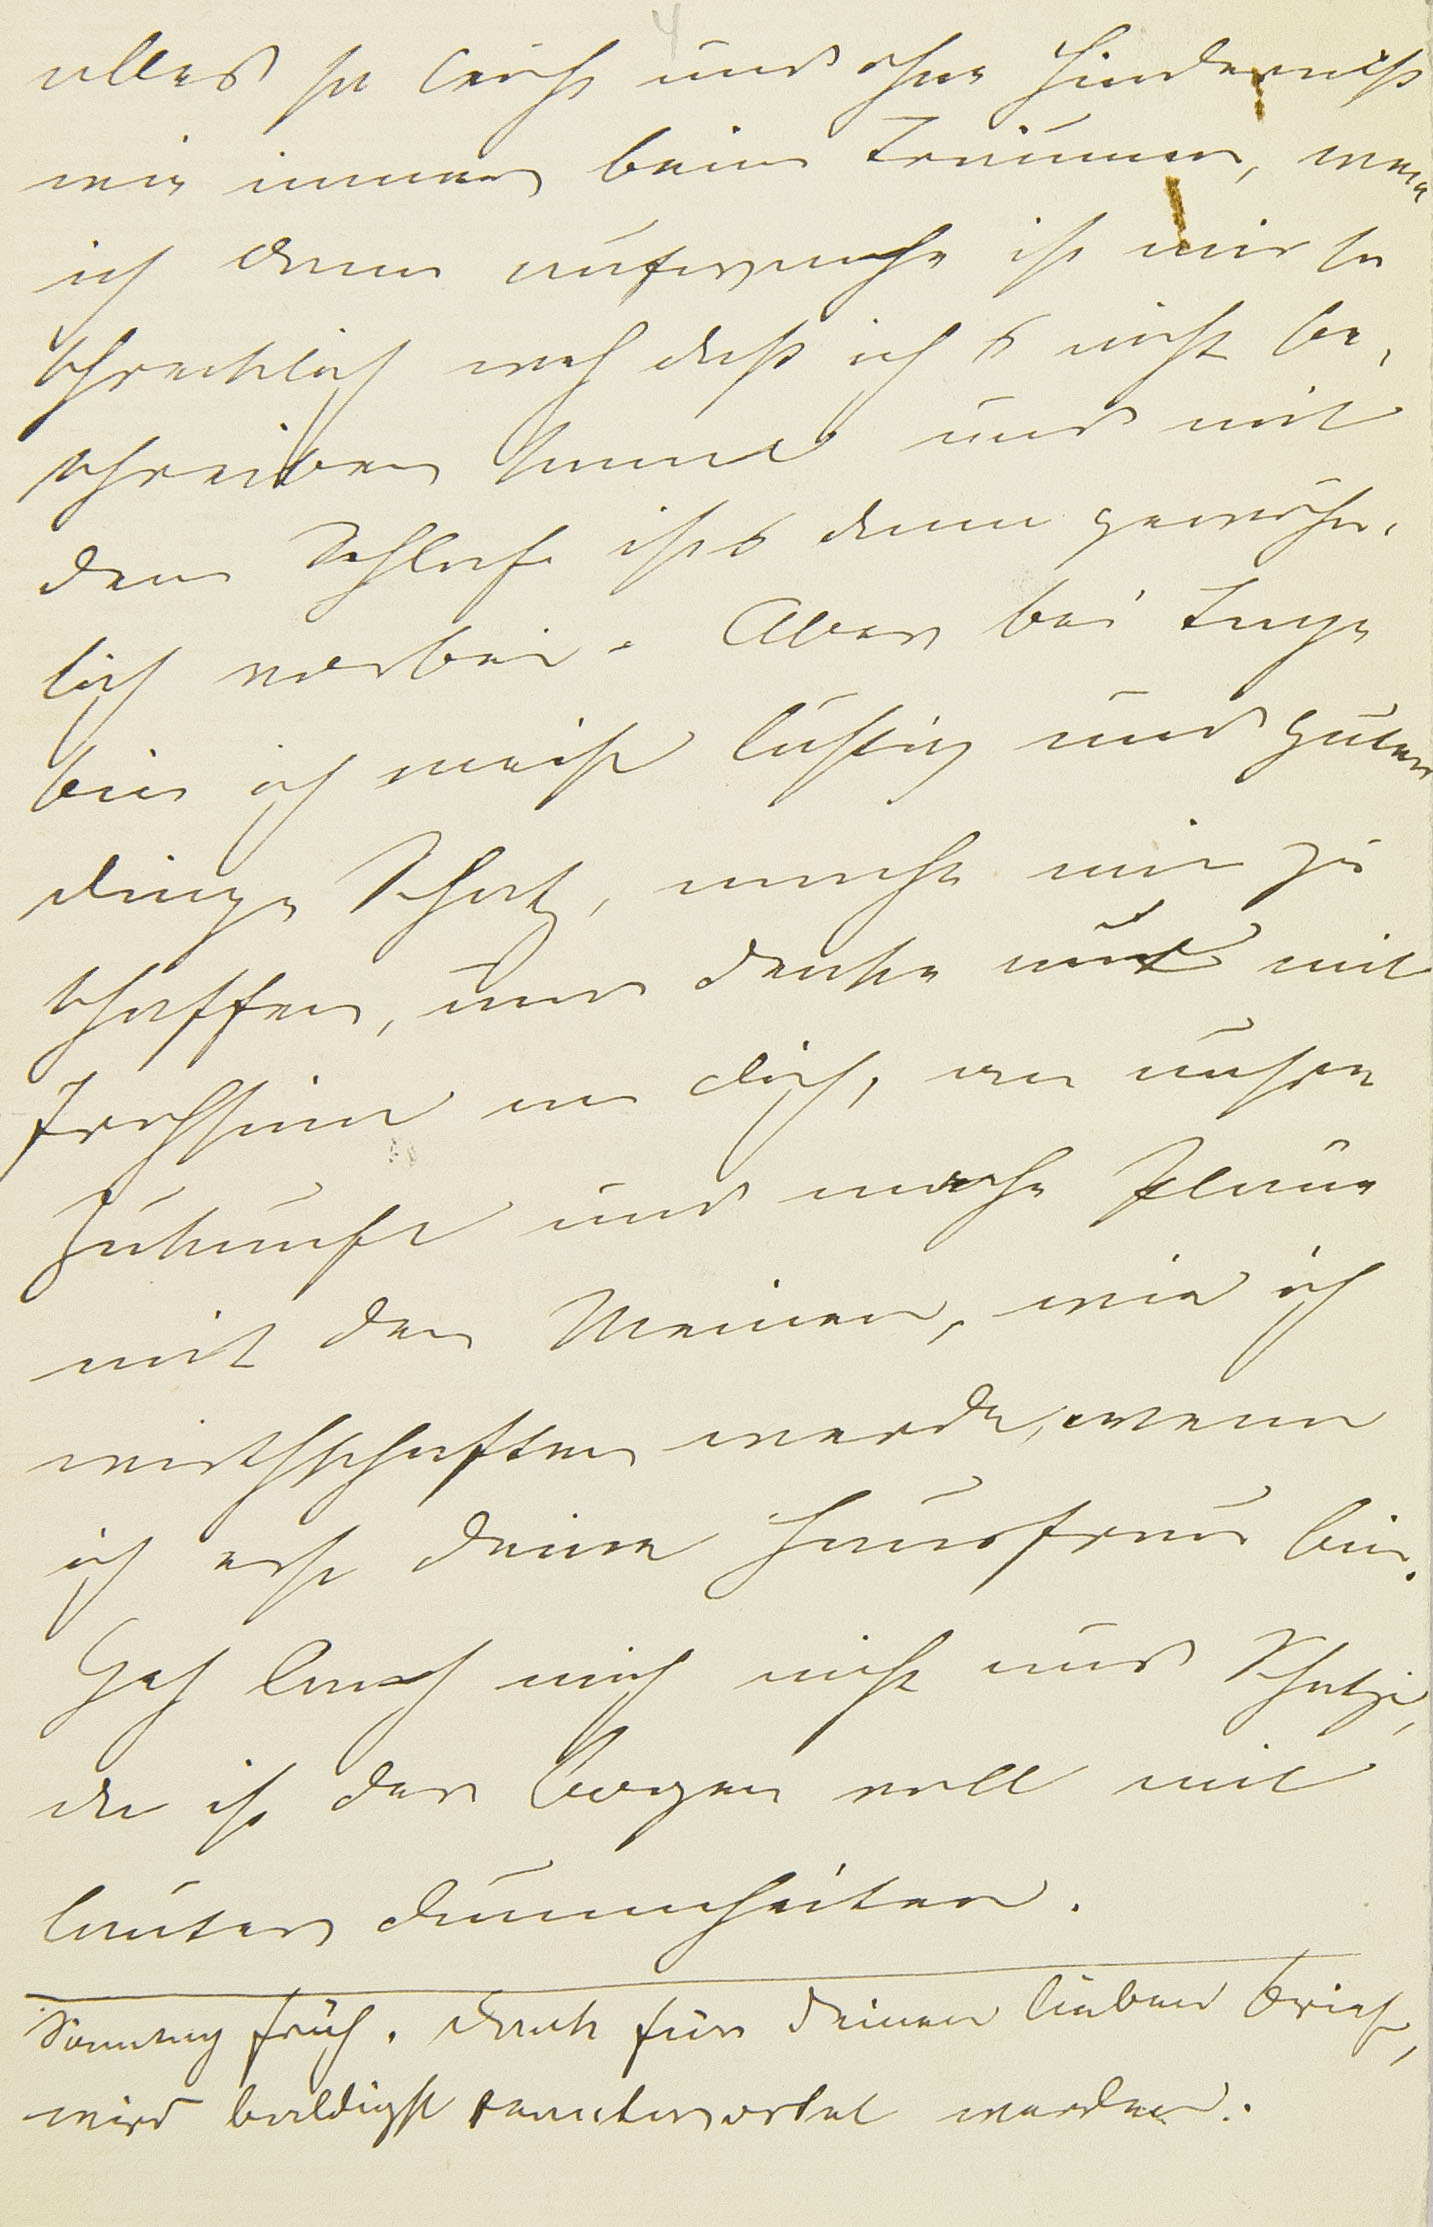 4
alles so leicht und ohne Hinderniß
wie immer beim Träumen, wenn
ich dann aufwache ist mir so
schrecklich weh daß ich's nicht be,
schreiben kann und mit
dem Schlafe ist's dann gewöhn,
lich vorbei. Aber bei Tage
bin ich meist lustig und guter
dinge Schatz, mache mir zu
schaffen, und denke nur mit
Frohsinn an dich, an unsre
Zukunft und mache Pläne
mit den Meinen, wie ich
wirthschaften werde, wenn
ich erst deine Hausfrau bin.
Geh lach mich nicht aus Schatzi,
da ist der Bogen voll mit
lauter dummheiten.
Sonntag früh. dank für deinen lieben Brief,
wird baldigst beantwortet werden.